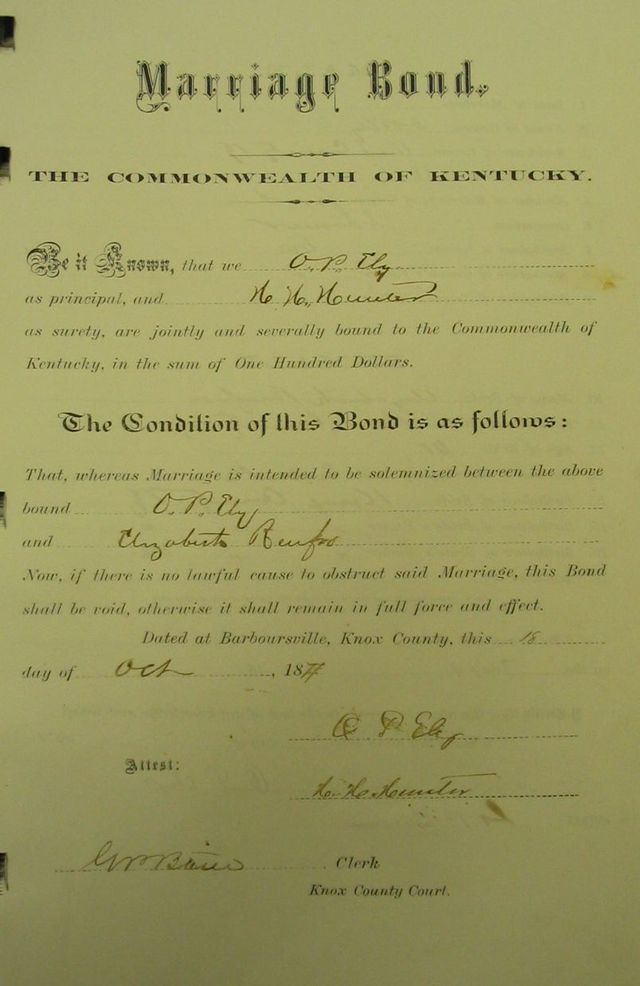 Marriage Bond.
THE COMMONWEALTH OF KENTUCKY.
Be it Known, that we O. P. Ely
as principal, and H. H. Hunter
as surety, are jointly and severally bound to the Commonwealth of
Kentucky, in the sum of One Hundred Dollars.
The Condition of this Bond is as follows:
That, whereas Marriage is intended to be solemnized between the above
bound O. P. Ely
and Elizabeth Renfro
Now, if there is no lawful cause to obstruct said Marriage, this Bond
shall be void, otherwise it shall remain in full force and effect.
Dated at Barboursville, Knox County, this 18
day of Oct, 18
O P Ely
Attest:
H. H. Hunter
Clerk
Knox County Court.